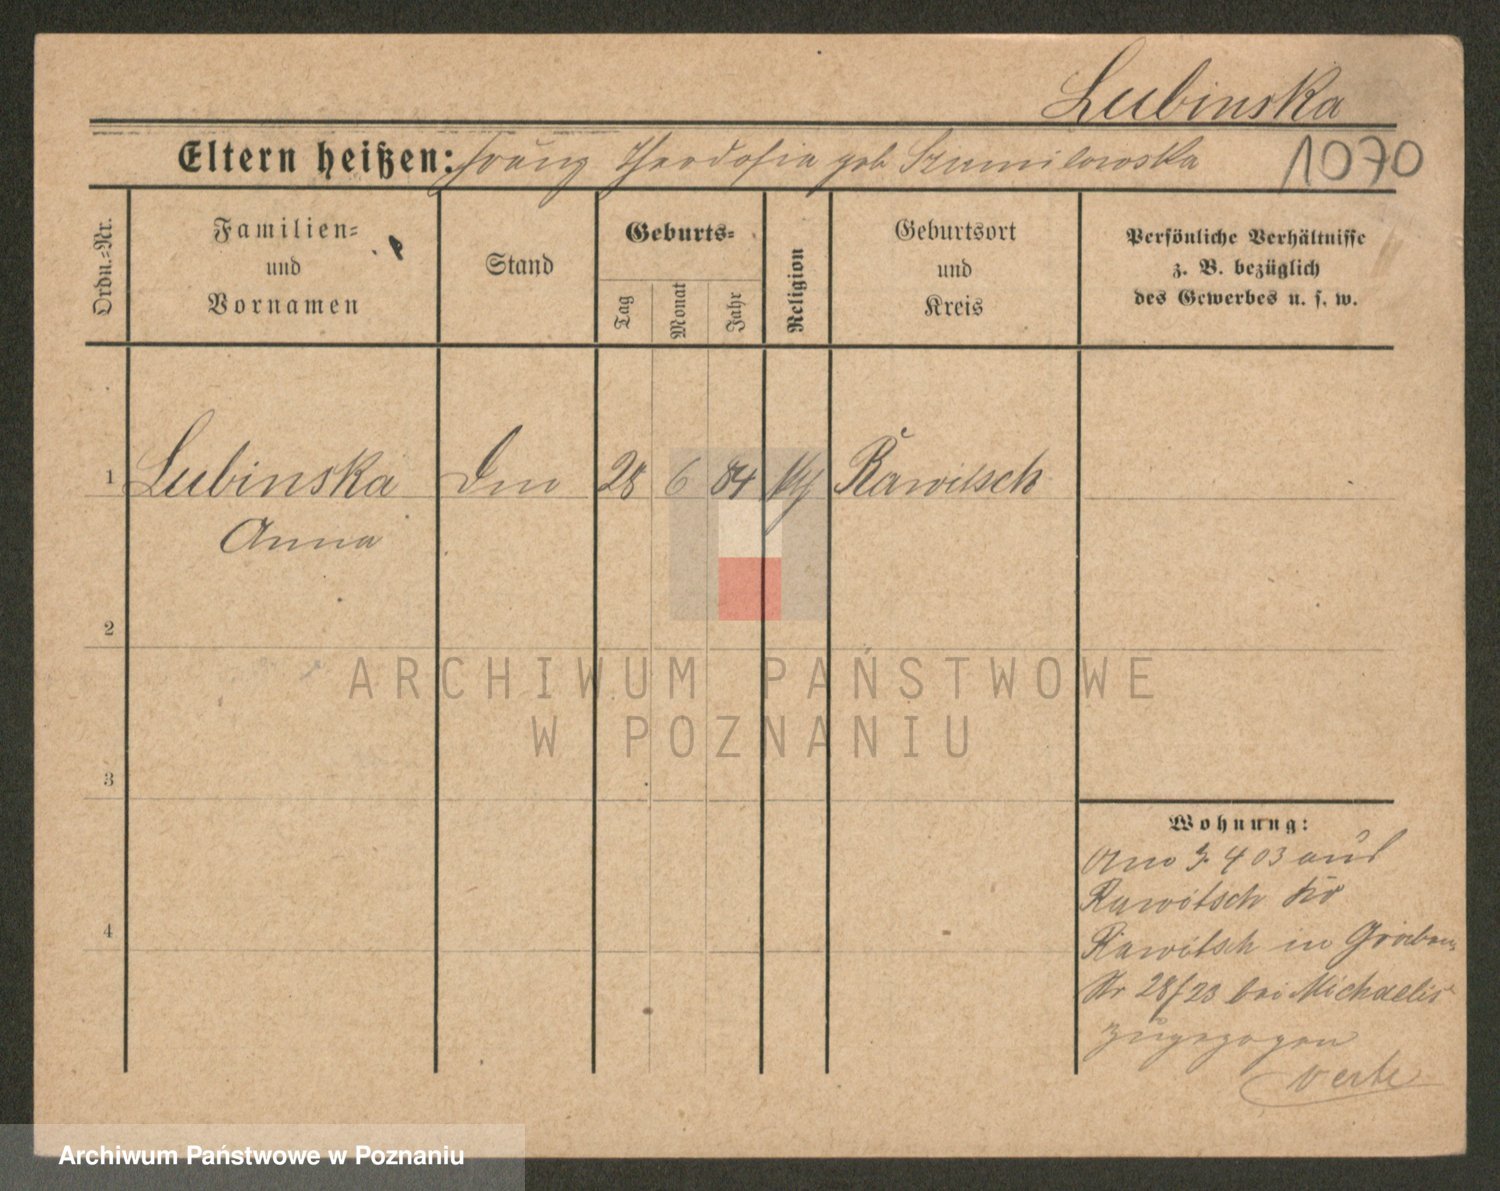 Lubinska
Eltern heißen: Franz Theodosia geb Szumilowska
1070
Ordn.=Nr.
Familien=
und
Vornamen
Stand
Geburts=
Tag
Monat
Jahr
Religion
Geburtsort
und
Kreis
Persönliche Verhältnisse
z. B. bezüglich
des Gewerbes u. s. w.
1 Lubinska 28 6 84 Rawitsch
Anna
2
3
4
Wohnung:
Am 3. 4 03 aus
Rawitsch Kr
Rawitsch in Graben=
Str 28/23 bei Michaelis
zugezogen
ARCHIWUM PAŃSTWOWE
W POZNANIU
Archiwum Państwowe w Poznaniu